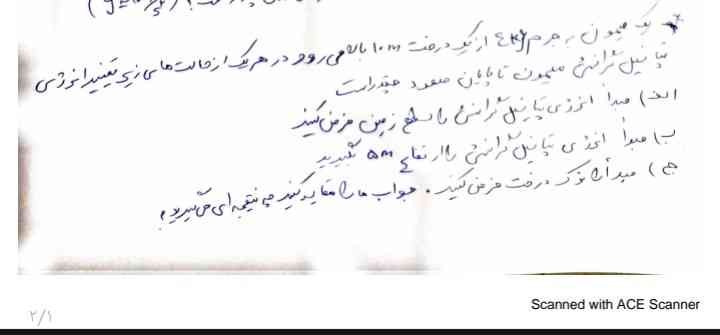 * یک میمون به جرم ۴kg از یک درخت ۱۰m بالا می رود در هر یک از حالت های زیر تغییر انرژی
پتانسیل گرانشی میمون تا پایان صعود چقدر است
الف) مبدأ انرژی پتانسیل گرانشی را سطح زمین فرض کنید
ب) مبدأ انرژی پتانسیل گرانشی را ارتفاع ۵m بگیرید
ج) مبدأ را نوک درخت فرض کنید. جواب ها را مقایسه کنید چه نتیجه ای می گیرید؟
Scanned with ACE Scanner
۲/۱